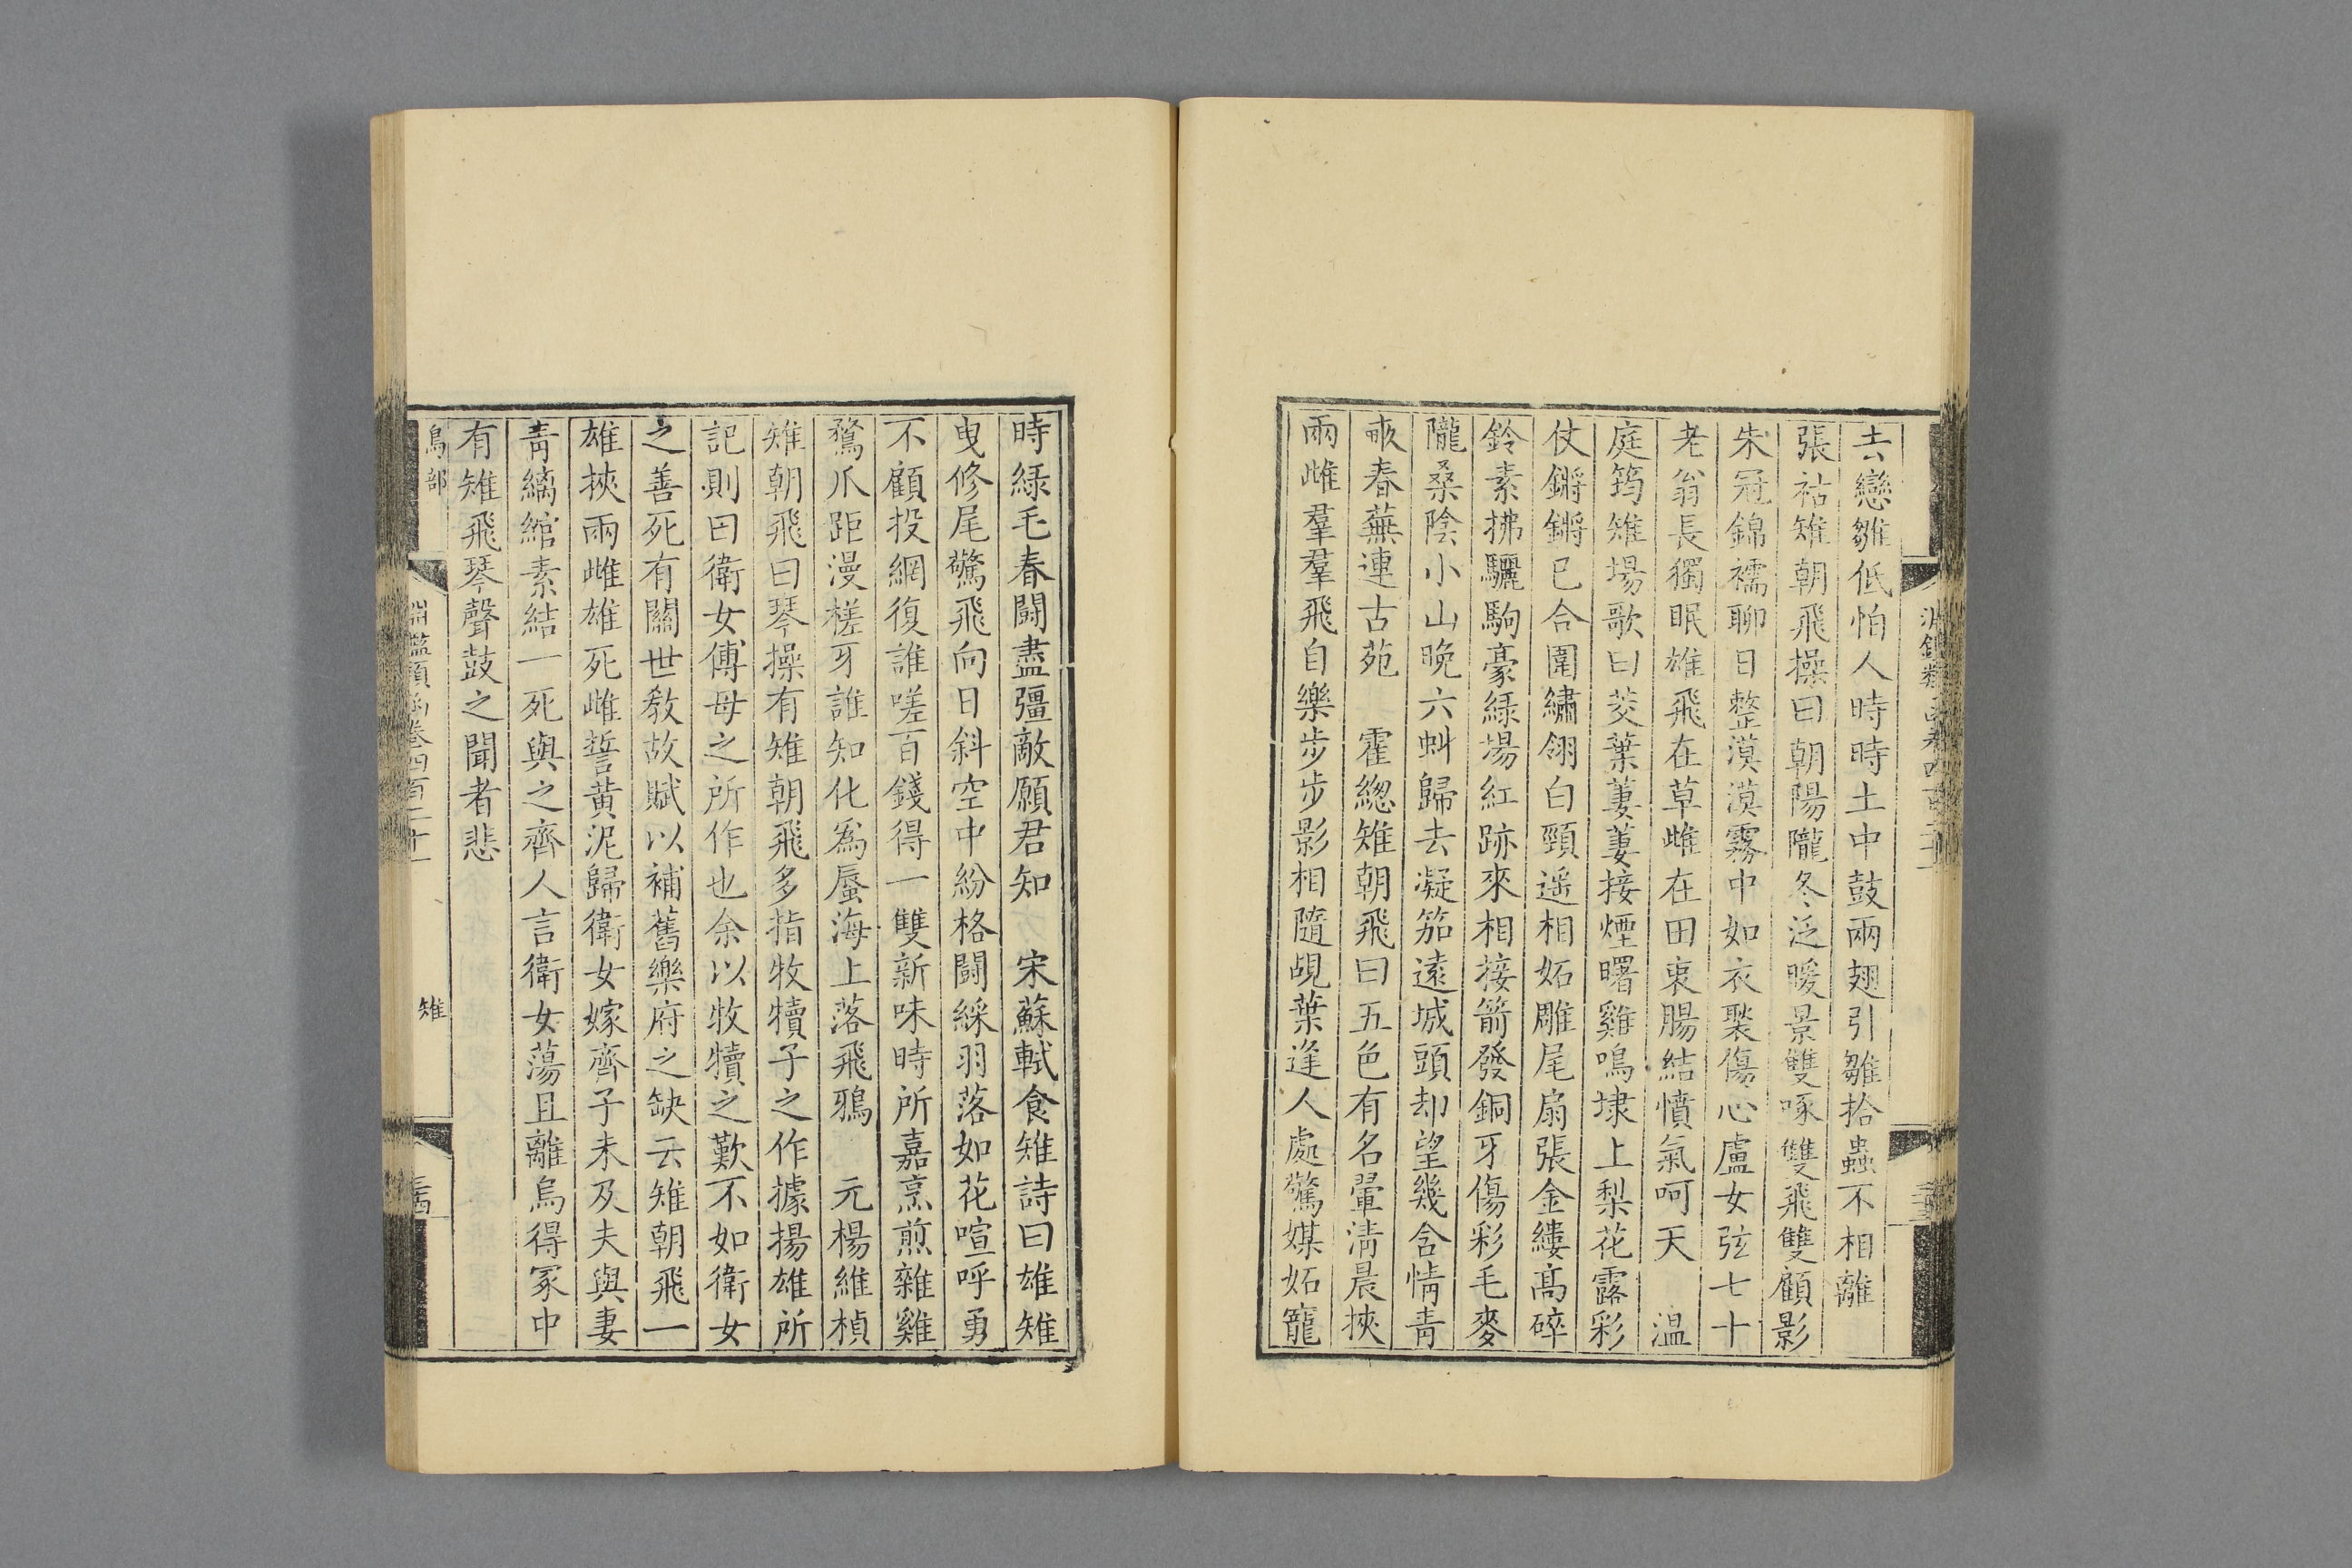 去戀雛低怕人時時土中鼓兩翅引雛拾蟲不相離
張祜雉朝飛操曰朝陽隴冬泛暖景雙啄雙飛雙顧影
朱冠錦襦聊日整漠漠霧中如衣褧傷心盧女弦七十
老翁長獨眠雄飛在草雌在田衷腸結憤氣呵天　溫
庭筠雉場歌曰茭葉萋萋接煙曙雞鳴埭上梨花露彩
仗鏘鏘已合圍繡翎白頸遥相妬雕尾扇張金縷高碎
鈴素拂驪駒豪綠場紅跡來相接箭發銅牙傷彩毛麥
隴桑陰小山晚六虯歸去凝笳遠城頭却望幾含情青
畝春蕪連古苑　霍總雉朝飛曰五色有名翬淸晨挾
兩雌羣羣飛自樂步步影相隨覘葉逢人處驚媒妬寵
時綠毛春鬪盡彊敵願君知　宋蘇軾食雉詩曰雄雉
曳修尾驚飛向日斜空中紛格鬪綵羽落如花喧呼勇
不顧投網復誰嗟百錢得一雙新味時所嘉烹煎雜雞
鶩爪距漫槎牙誰知化爲蜃海上落飛鴉　元楊維楨
雉朝飛曰琴操有雉朝飛多指牧犢子之作據揚雄所
記則曰衛女傅母之所作也余以牧犢之歎不如衛女
之善死有關世教故賦以補舊樂府之缺云雉朝飛一
雄挾兩雌雄死雌誓黄泥歸衛女嫁齊子未及夫與妻
靑縭綰素結一死與之齊人言衛女蕩且離烏得冢中
有雉飛琴聲鼓之聞者悲
鳥部
淵鑑類函卷四百二十一
雉